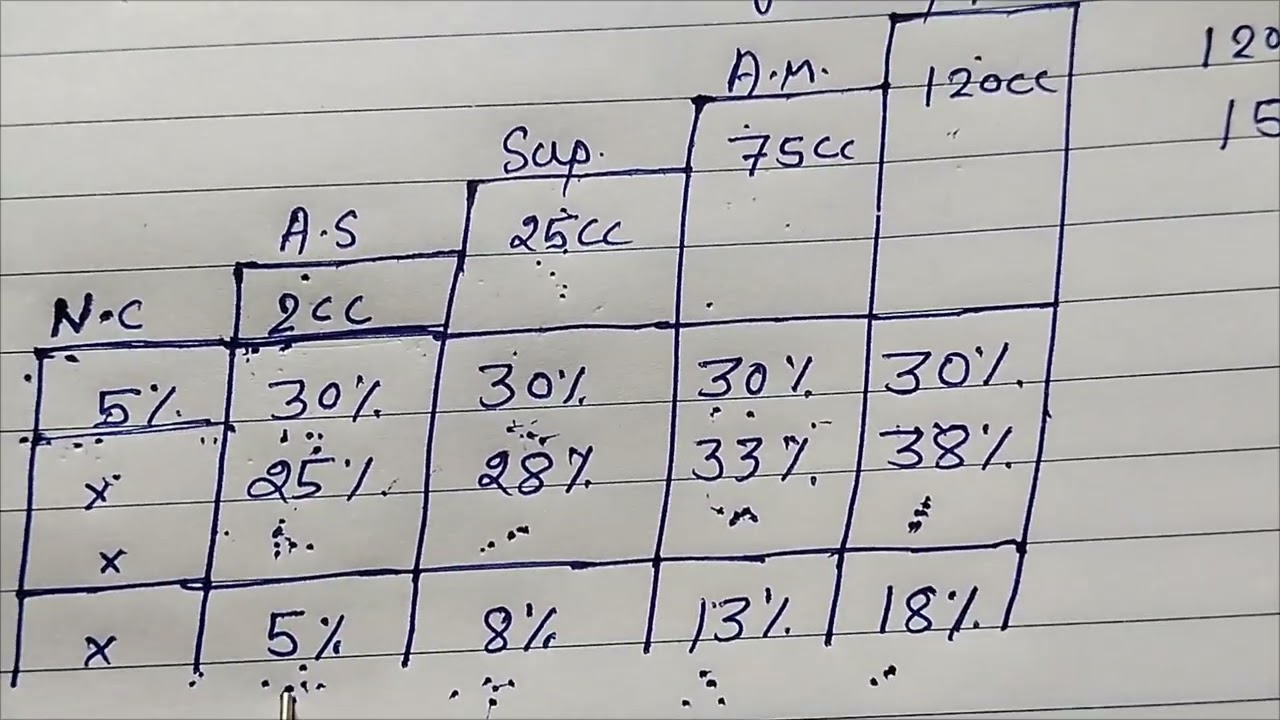 120
A.M. 120cc
15
Sup. 75cc
A.S 25cc
N.C 2cc
5% 30% 30% 30% 30%
x 25% 28% 33% 38%
x
x 5% 8% 13% 18%